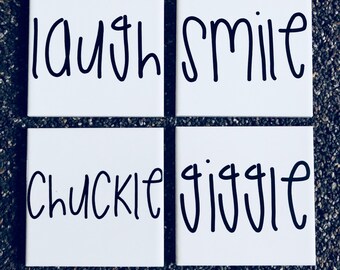 laugh
smile
chuckle
giggle